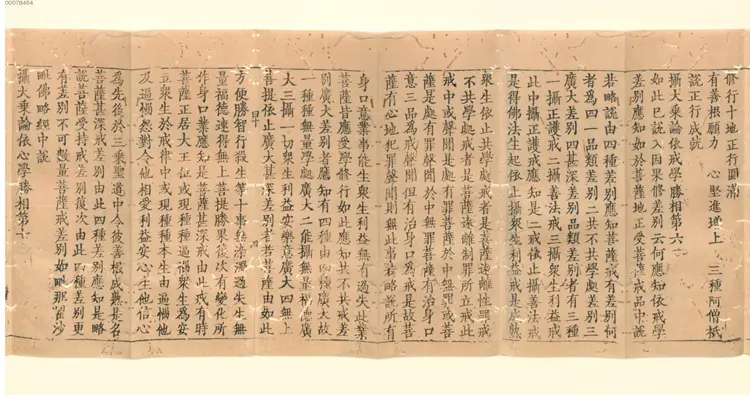 修行十地 正行圓滿
有善根願力 心堅進增上 三種阿僧祇
說正行成就
攝大乘論依戒學勝相第六
如此已說入因果修差別云何應知依戒學
差別應知如於菩薩地正受菩薩戒品中說
若略說由四種差別應知菩薩戒有差別何
者為四一品類差別二共不共學處差別三
廣大差別四甚深差別品類差別者有三種
一攝正護戒二攝善法戒三攝衆生利益戒
此中攝正護戒應知是二戒依止攝善法戒
是得佛法生起依止攝衆生利益戒是成熟
衆生依止共學處戒者是菩薩遠離性罪戒
不共學處戒者是菩薩遠離制罪所立戒此
戒中或聲聞是處有罪菩薩於中無罪或菩
薩是處有罪聲聞於中無罪菩薩有治身口
意三品為戒聲聞但有治身口為戒是故菩
薩有心地犯罪聲聞則無此事若略說所有
身口意業事能生衆生利益無有過失此業
菩薩皆應受學修行如此應知共不共戒差
別廣大差別者應知有四種由四種廣大故
一種種無量學處廣大二能攝無量福德廣
大三攝一切衆生利益安樂意廣大四無上
菩提依止廣大甚深差別者若菩薩由如此
方便勝智行殺生等十事無染濁過失生無
量福德速得無上菩提勝果復次有變化所
作身口業應知是菩薩甚深戒由此戒有時
菩薩正居大王位或現種種逼惱衆生為安
立衆生於戒律中或現種種本生由逼惱他
及逼惱怨對令他相愛利益安心生他信心
為先後於三乘聖道中令彼善根成熟是名
菩薩甚深戒差別由此四種差別應知是略
說菩薩受持戒差別復次由此四種差別更
有差別不可數量菩薩戒差別如毗那瞿沙
毗佛略經中說
攝大乘論依心學勝相第七